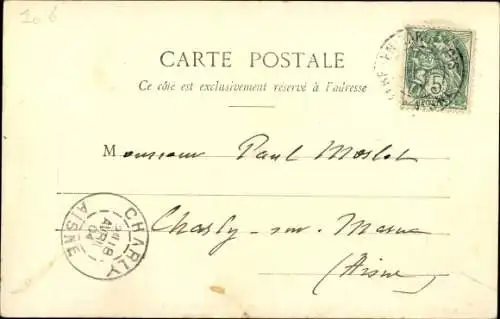 20 6
CARTE POSTALE
Ce côté est exclusivement réservé à l'adresse
Monsieur Paul
Charly-sur-Marne
(Aisne)
CHARLY
18
AVRIL
04
AISNE
5